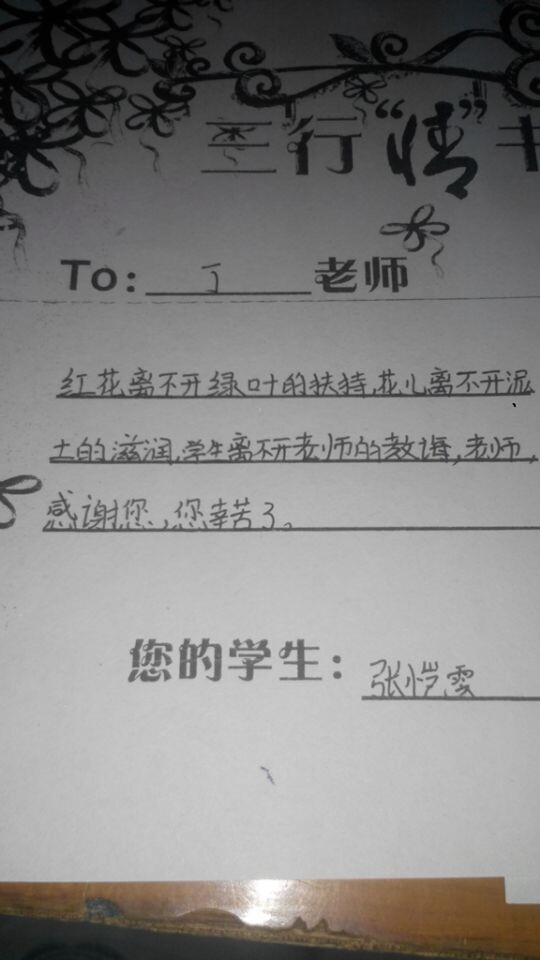 三行“情”书
To: 丁 老师
红花离不开绿叶的扶持,花儿离不开泥
土的滋润,学生离不开老师的教诲,老师,
感谢您,您辛苦了。
您的学生: 张恺雯